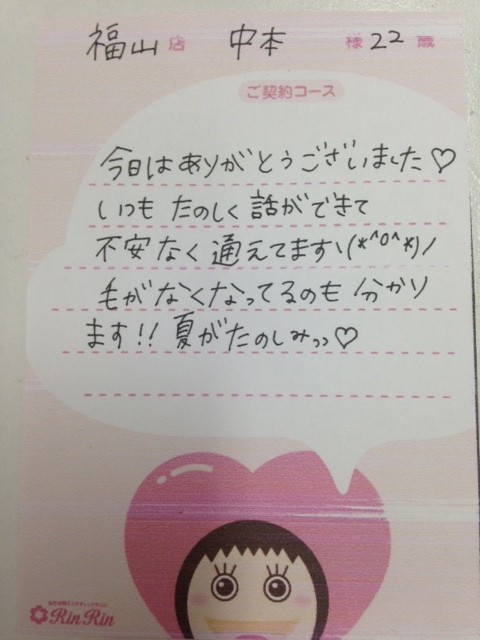 福山店 中本 様 22歳
ご契約コース
今日はありがとうございました♡
いつも たのしく 話ができて
不安なく 通えてますヽ(*^o^*)ノ
毛がなくなってるのも 分かり
ます!! 夏がたのしみっっ♡
RinRin